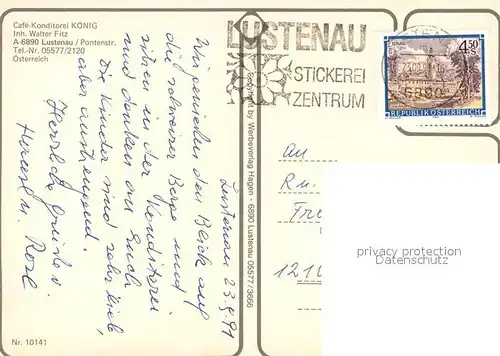 Café-Konditorei KÖNIG
Inh. Walter Fitz
A-6890 Lustenau / Pontenstr.
Tel.-Nr. 05577/2120
Österreich
LUSTENAU
STICKEREI
ZENTRUM
4.50
6890
REPUBLIK ÖSTERREICH
Lustenau 23.4.91
Wir genießen den Blick auf
die schweizer Berge und
sitzen in der Konditorei
und denken an Euch
Die Kinder sind sehr lieb
aber anstrengend
Herzliche Grüße v.
u. Rosl
Copyright by Werbeverlag Hagen - 6890 Lustenau 05577/3666
an
1210
privacy protection
Datenschutz
Nr. 10141